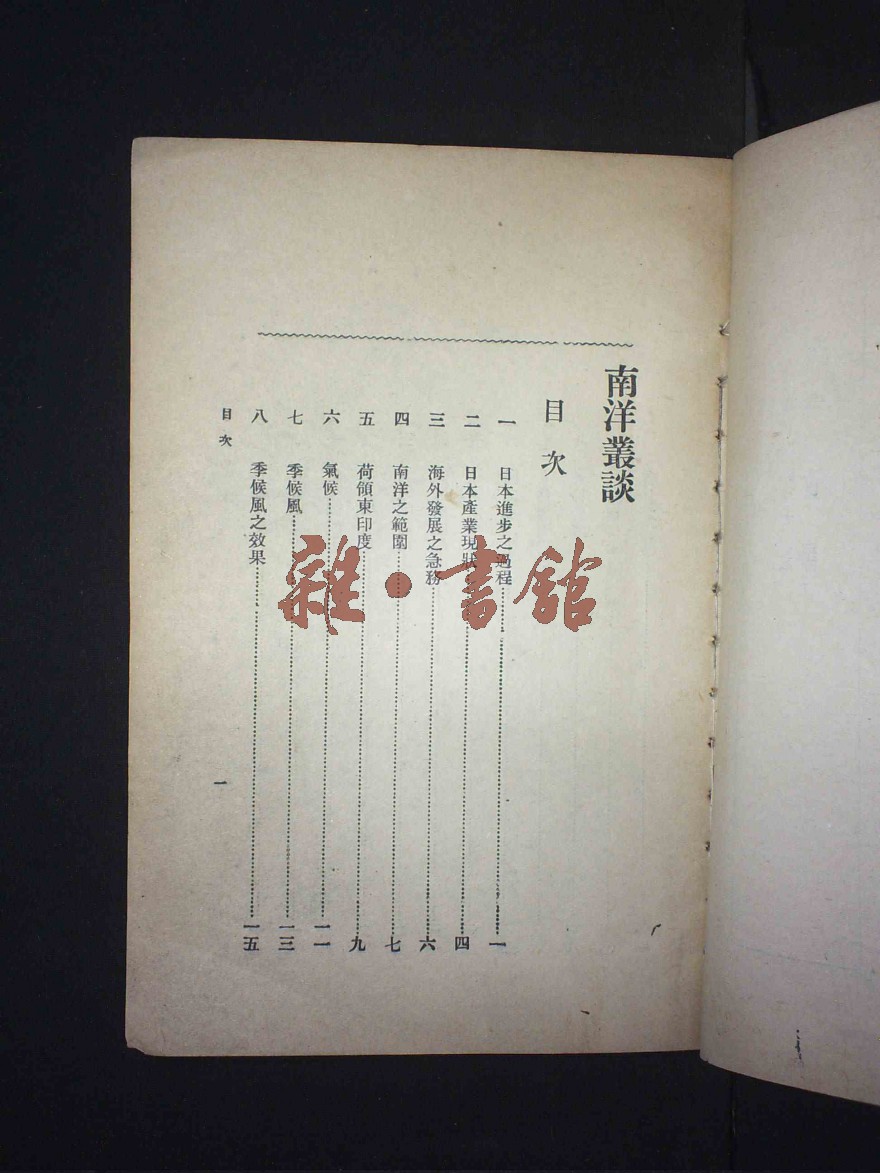 南洋叢談
目次
一 日本進步之過程 一
二 日本產業現狀 四
三 海外發展之急務 六
四 南洋之範圍 七
五 荷領東印度 九
六 氣候 一一
七 季候風 一三
八 季候風之效果 一五
目次 一
雜·書館